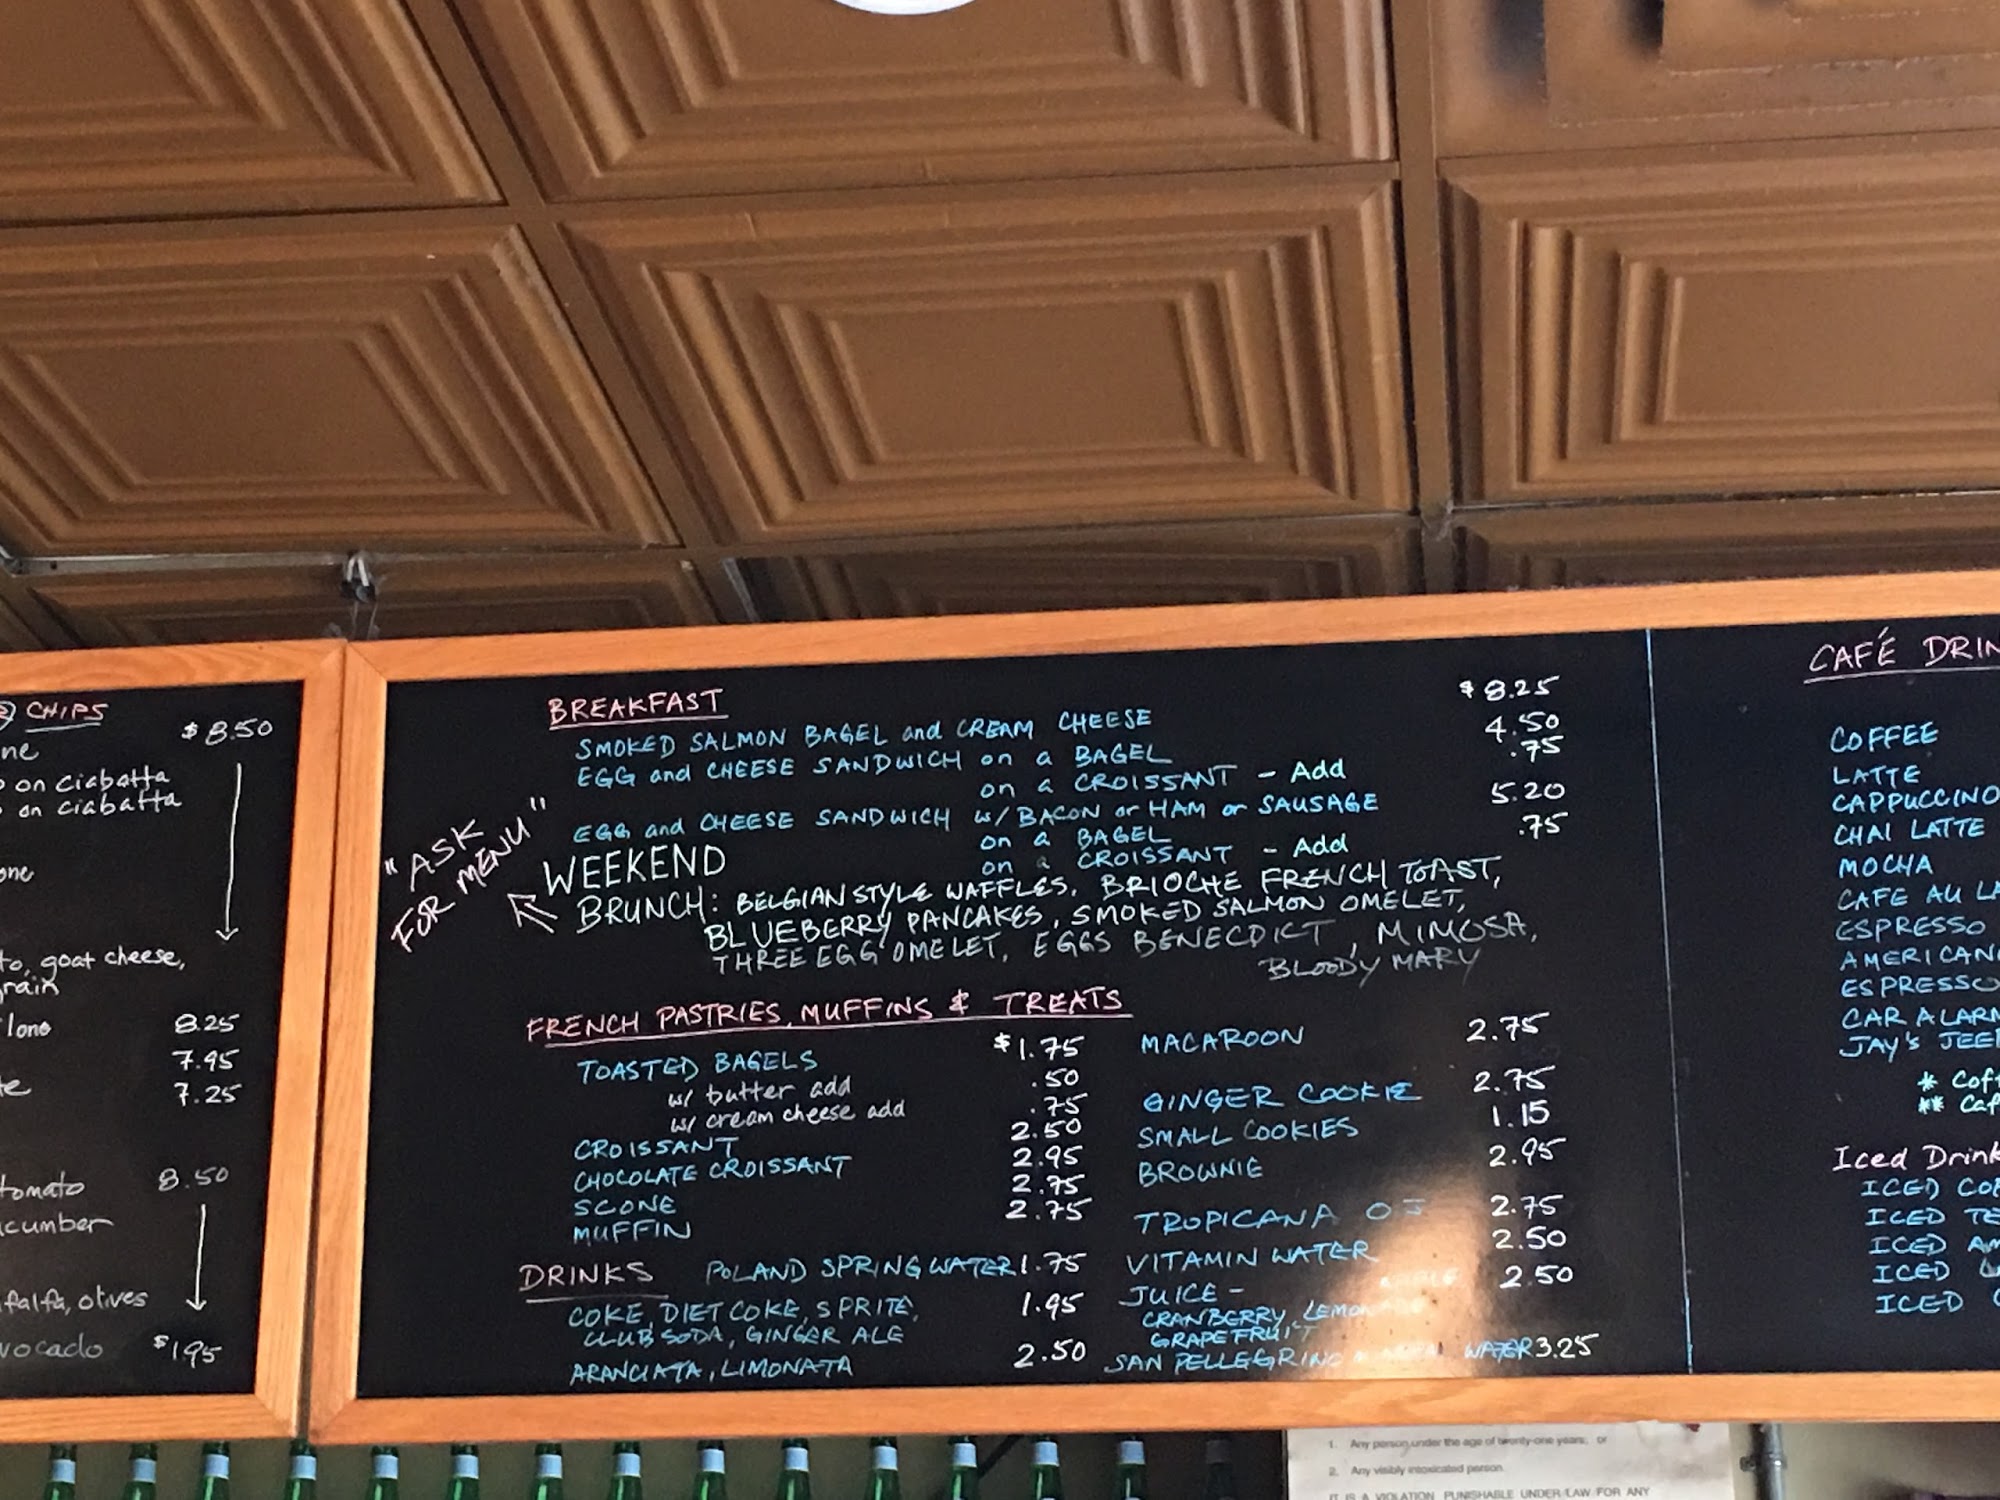 CHIPS
$8.50
on ciabatta
on ciabatta
goat cheese,
8.25
7.95
7.25
tomato
8.50
olives
$1.95
"ASK
FOR MENU"
BREAKFAST
SMOKED SALMON BAGEL and CREAM CHEESE $8.25
EGG and CHEESE SANDWICH on a BAGEL 4.50
on a CROISSANT - Add .75
EGG and CHEESE SANDWICH w/ BACON or HAM or SAUSAGE
on a BAGEL 5.20
on a CROISSANT - Add .75
WEEKEND
BRUNCH: BELGIAN STYLE WAFFLES, BRIOCHE FRENCH TOAST,
BLUEBERRY PANCAKES, SMOKED SALMON OMELET,
THREE EGG OMELET, EGGS BENECDICT, MIMOSA,
BLOODY MARY
FRENCH PASTRIES, MUFFINS & TREATS
TOASTED BAGELS $1.75
w/ butter add .50
w/ cream cheese add .75
CROISSANT 2.50
CHOCOLATE CROISSANT 2.95
SCONE 2.75
MUFFIN 2.75
MACAROON 2.75
GINGER COOKIE 2.75
SMALL COOKIES 1.15
BROWNIE 2.95
TROPICANA OJ 2.75
VITAMIN WATER 2.50
JUICE - 2.50
CRANBERRY,
GRAPEFRUIT
SAN PELLEGRINO WATER 3.25
DRINKS POLAND SPRING WATER 1.75
COKE, DIET COKE, SPRITE, 1.95
CLUB SODA, GINGER ALE
ARANCIATA, LIMONATA 2.50
CAFÉ
COFFEE
LATTE
CAPPUCCINO
CHAI LATTE
MOCHA
CAFE AU
ESPRESSO
ESPRESSO
CAR
JAY'S
Iced
ICED
ICED
ICED
ICED
ICED
1. Any person under the age of twenty-one years; or
2. Any visibly intoxicated person.
IT IS A VIOLATION PUNISHABLE UNDER LAW FOR ANY